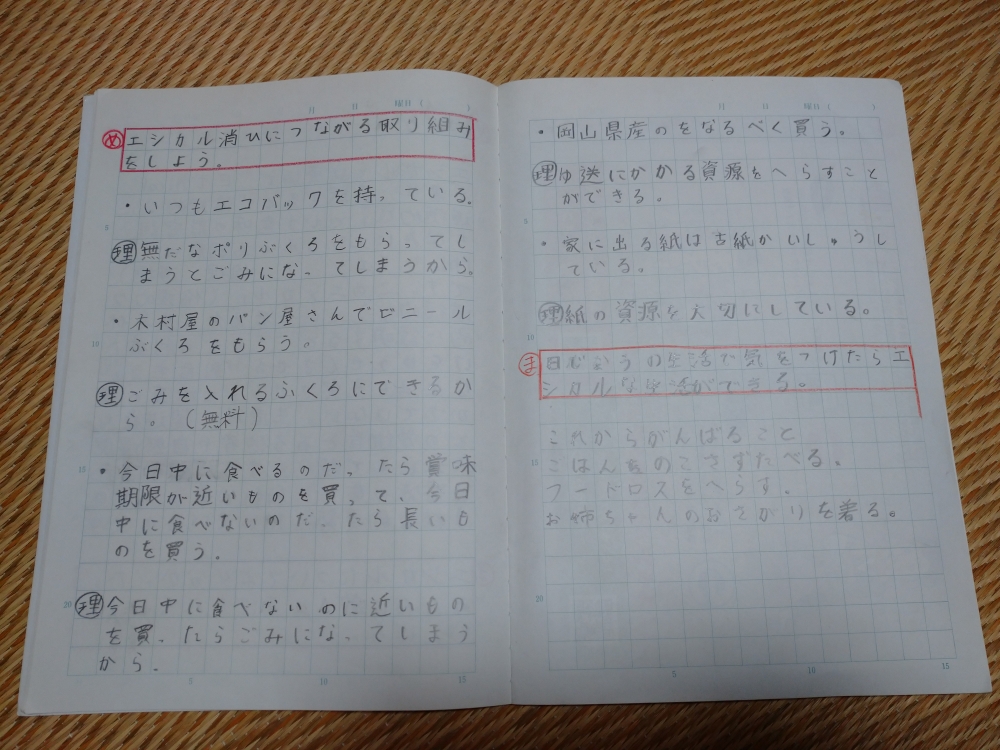 月 日 曜日( )
め エシカル消ひにつながる取り組み
をしよう。
・いつもエコバックを持っている。
理 無だなポリぶくろをもらってし
まうとごみになってしまうから。
・木村屋のパン屋さんでビニール
ぶくろをもらう。
理 ごみを入れるふくろにできるか
ら。(無料)
・今日中に食べるのだったら賞味
期限が近いものを買って、今日
中に食べないのだったら長いも
のを買う。
理 今日中に食べないのに近いもの
を買ったらごみになってしまう
から。
5 10 15
月 日 曜日( )
・岡山県産のをなるべく買う。
理 ゆ送にかかる資源をへらすこと
ができる。
・家に出る紙は古紙かいしゅうし
ている。
理 紙の資源を大切にしている。
ま 日じょうの生活で気をつけたらエ
シカルな生活ができる。
これからがんばること
ごはんをのこさずたべる、
フードロスをへらす。
お姉ちゃんのおさがりを着る。
5 10 15